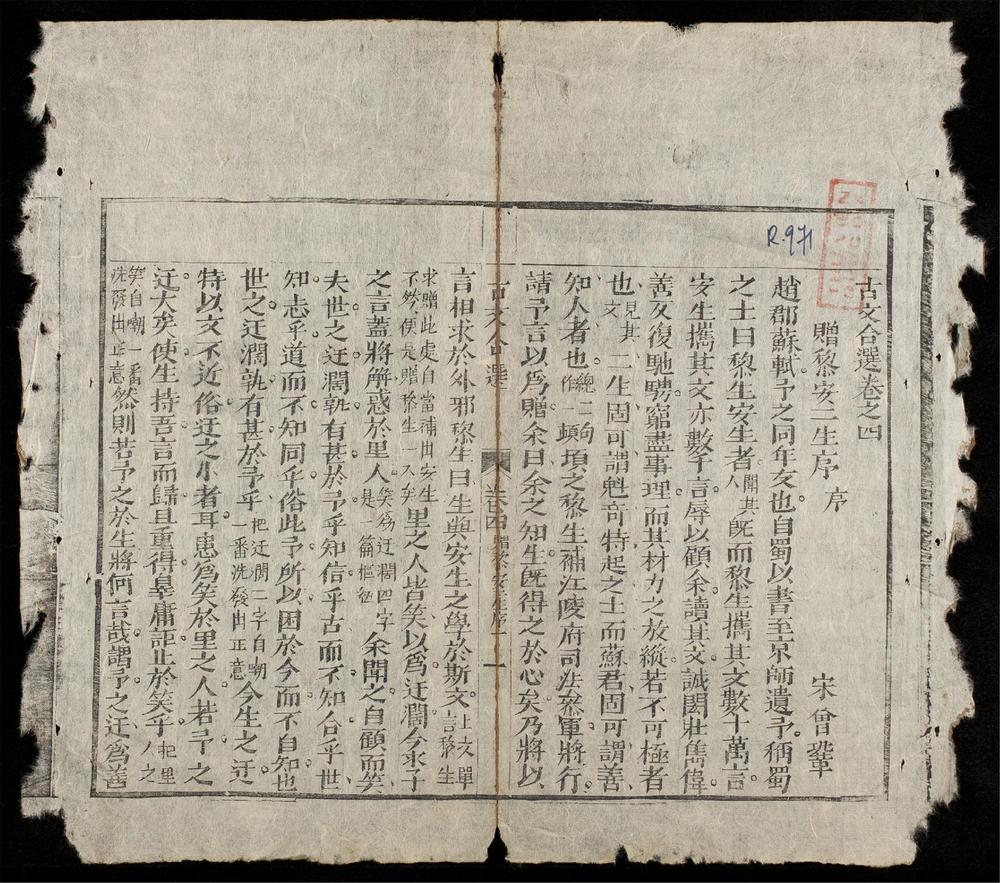 R.971
古文合選卷之四
贈黎安二生序 序 宋曾鞏
趙郡蘇軾予之同年友也自蜀以書至京師遺予稱蜀
之士曰黎生安生者開其人既而黎生攜其文數十萬言
安生攜其文亦數千言辱以顧余讀其文誠閎壯雋偉
善反復馳騁窮盡事理而其材力之放縱若不可極者
也見其文二生固可謂魁奇特起之士而蘇君固可謂善
知人者也總二句作一頓頃之黎生補江陵府司法叅軍將行
請予言以爲贈余曰余之知生既得之於心矣乃將以
古文合選 卷四 贈黎安二生序 一
言相求於外邪黎生曰生與安生之學於斯文上文單言黎生
求贈此處自當補出安生不然便是贈黎生一人矣里之人皆笑以爲迂濶今求子
之言蓋將解惑於里人笑爲迂濶四字是一篇樞紐余聞之自顧而笑
夫世之迂濶孰有甚於予乎知信乎古而不知合乎世
知志乎道而不知同乎俗此予所以困於今而不自知也
世之迂濶孰有甚於予乎把迂濶二字自嘲一番洗發出正意今生之迂
特以文不近俗迂之小者耳患爲笑於里之人若予之
迂大矣使生持吾言而歸且重得辠庸詎止於笑乎把里人之
笑自嘲一番洗發出正意然則若予之於生將何言哉謂予之迂爲善